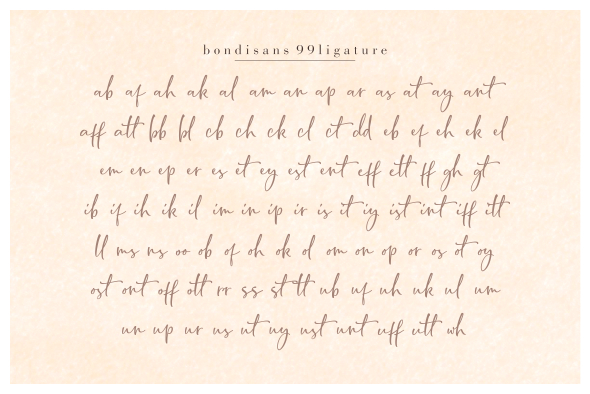 bondisans 99ligature
ab af ah ak al am an ap ar as at ay ant
aff att bb bl cb ch ck cl ct dd eb ef eh ek el
em en ep er es et ey est ent eff ett ff gh gt
ib if ih ik il im in ip ir is it iy ist int iff itt
ll ms ns oo ob of oh ok ol om on op or os ot oy
ost ont off ott rr ss st tt ub uf uh uk ul um
un up ur us ut uy ust unt uff utt wh